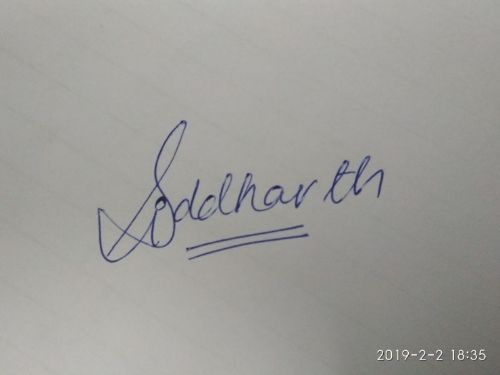 Siddharth
2019-2-2 18:35